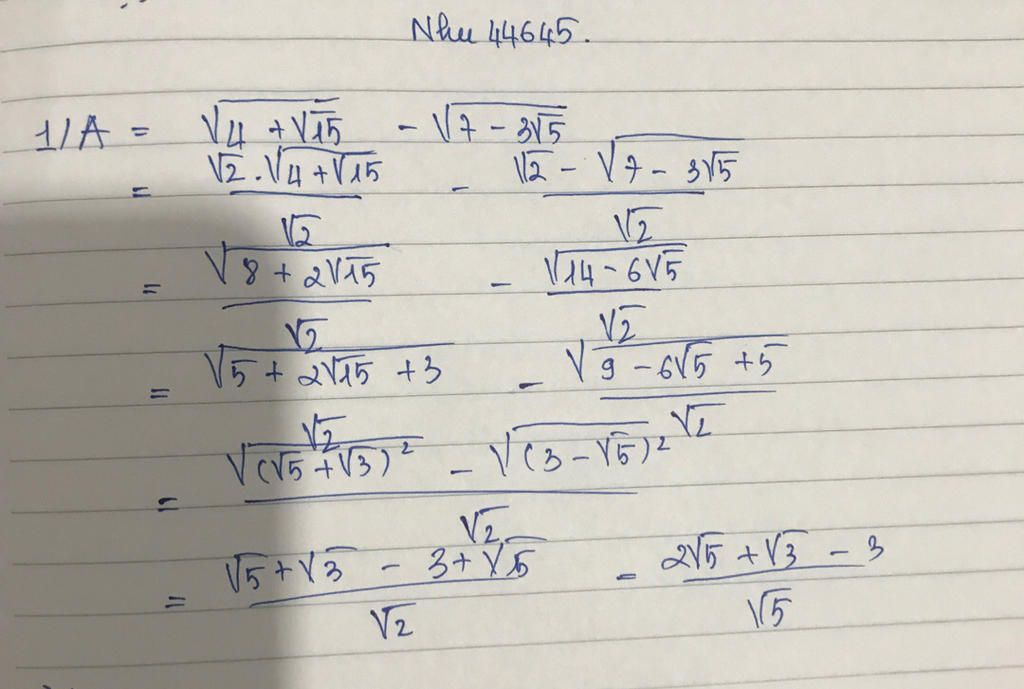 Nhu 44645.
1/A = √(4 + √15) - √(7 - 3√5)
= (√2.√(4 + √15))/√2 - (√2 - √(7 - 3√5))/√2
= √(8 + 2√15)/√2 - √(14 - 6√5)/√2
= √(5 + 2√15 + 3)/√2 - √(9 - 6√5 + 5)/√2
= (√((√5 + √3)²) - √((3 - √5)²))/√2
= (√5 + √3 - 3 + √5)/√2 - (2√5 + √3 - 3)/√5